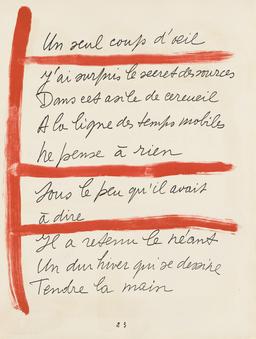 Un seul coup d'œil
J'ai surpris le secret des sources
Dans cet asile de cercueil
A la ligne des temps mobiles
Ne pense à rien
Sous le peu qu'il avait
à dire
Il a retenu le néant
Un dur hiver qui se dessine
Tendre la main
23